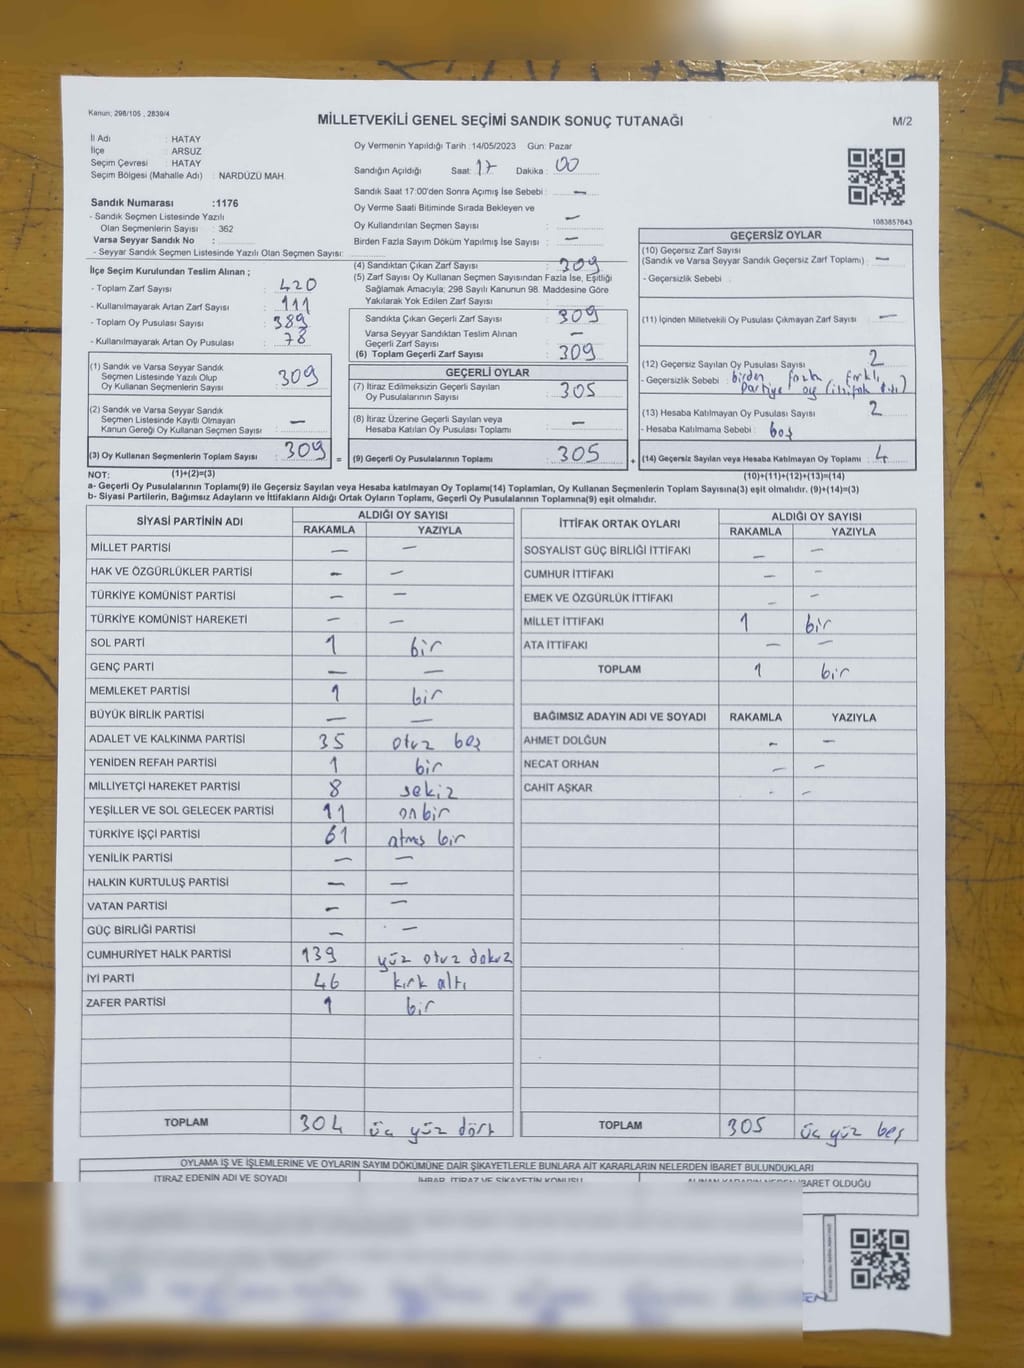 Kanun: 298/105 , 2839/4
MİLLETVEKİLİ GENEL SEÇİMİ SANDIK SONUÇ TUTANAĞI
M/2
İl Adı : HATAY
İlçe : ARSUZ
Seçim Çevresi : HATAY
Seçim Bölgesi (Mahalle Adı) : NARDÜZÜ MAH.
Sandık Numarası :1176
- Sandık Seçmen Listesinde Yazılı
Olan Seçmenlerin Sayısı : 362
Varsa Seyyar Sandık No :
- Seyyar Sandık Seçmen Listesinde Yazılı Olan Seçmen Sayısı:
İlçe Seçim Kurulundan Teslim Alınan ;
- Toplam Zarf Sayısı : 420
- Kullanılmayarak Artan Zarf Sayısı : 111
- Toplam Oy Pusulası Sayısı : 389
- Kullanılmayarak Artan Oy Pusulası : 78
(1) Sandık ve Varsa Seyyar Sandık
Seçmen Listesinde Yazılı Olup
Oy Kullanan Seçmenlerin Sayısı : 309
(2) Sandık ve Varsa Seyyar Sandık
Seçmen Listesinde Kayıtlı Olmayan
Kanun Gereği Oy Kullanan Seçmen Sayısı : —
(3) Oy Kullanan Seçmenlerin Toplam Sayısı : 309
Oy Vermenin Yapıldığı Tarih :14/05/2023 Gün: Pazar
Sandığın Açıldığı Saat: 17 Dakika : 00
Sandık Saat 17:00'den Sonra Açımış İse Sebebi : —
Oy Verme Saati Bitiminde Sırada Bekleyen ve
Oy Kullandırılan Seçmen Sayısı : —
Birden Fazla Sayım Döküm Yapılmış İse Sayısı : —
(4) Sandıktan Çıkan Zarf Sayısı : 309
(5) Zarf Sayısı Oy Kullanan Seçmen Sayısından Fazla İse, Eşitliği
Sağlamak Amacıyla; 298 Sayılı Kanunun 98. Maddesine Göre
Yakılarak Yok Edilen Zarf Sayısı :
Sandıkta Çıkan Geçerli Zarf Sayısı : 309
Varsa Seyyar Sandıktan Teslim Alınan
Geçerli Zarf Sayısı : —
(6) Toplam Geçerli Zarf Sayısı : 309
GEÇERLİ OYLAR
(7) İtiraz Edilmeksizin Geçerli Sayılan
Oy Pusulalarının Sayısı : 305
(8) İtiraz Üzerine Geçerli Sayılan veya
Hesaba Katılan Oy Pusulası Toplamı : —
= (9) Geçerli Oy Pusulalarının Toplamı : 305
1083857643
GEÇERSİZ OYLAR
(10) Geçersiz Zarf Sayısı
(Sandık ve Varsa Seyyar Sandık Geçersiz Zarf Toplamı) : —
- Geçersizlik Sebebi :
(11) İçinden Milletvekili Oy Pusulası Çıkmayan Zarf Sayısı : —
(12) Geçersiz Sayılan Oy Pusulası Sayısı : 2
- Geçersizlik Sebebi : birden fazla farklı
partiye oy
(13) Hesaba Katılmayan Oy Pusulası Sayısı : 2
- Hesaba Katılmama Sebebi : boş
+ (14) Geçersiz Sayılan veya Hesaba Katılmayan Oy Toplamı : 4
NOT: (1)+(2)=(3) (10)+(11)+(12)+(13)=(14)
a- Geçerli Oy Pusulaların Toplamı(9) ile Geçersiz Sayılan veya Hesaba katılmayan Oy Toplamı(14) Toplamları, Oy Kullanan Seçmenlerin Toplam Sayısına(3) eşit olmalıdır. (9)+(14)=(3)
b- Siyasi Partilerin, Bağımsız Adayların ve İttifakların Aldığı Ortak Oyların Toplamı, Geçerli Oy Pusulalarının Toplamına(9) eşit olmalıdır.
SİYASİ PARTİNİN ADI ALDIĞI OY SAYISI
RAKAMLA YAZIYLA
MİLLET PARTİSİ — —
HAK VE ÖZGÜRLÜKLER PARTİSİ — —
TÜRKİYE KOMÜNİST PARTİSİ — —
TÜRKİYE KOMÜNİST HAREKETİ — —
SOL PARTİ 1 bir
GENÇ PARTİ — —
MEMLEKET PARTİSİ 1 bir
BÜYÜK BİRLİK PARTİSİ — —
ADALET VE KALKINMA PARTİSİ 35 otuz beş
YENİDEN REFAH PARTİSİ 1 bir
MİLLİYETÇİ HAREKET PARTİSİ 8 sekiz
YEŞİLLER VE SOL GELECEK PARTİSİ 11 on bir
TÜRKİYE İŞÇİ PARTİSİ 61 atmış bir
YENİLİK PARTİSİ — —
HALKIN KURTULUŞ PARTİSİ — —
VATAN PARTİSİ — —
GÜÇ BİRLİĞİ PARTİSİ — —
CUMHURİYET HALK PARTİSİ 139 yüz otuz dokuz
İYİ PARTİ 46 kırk altı
ZAFER PARTİSİ 1 bir
TOPLAM 304 üç yüz dört
İTTİFAK ORTAK OYLARI ALDIĞI OY SAYISI
RAKAMLA YAZIYLA
SOSYALİST GÜÇ BİRLİĞİ İTTİFAKI — —
CUMHUR İTTİFAKI — —
EMEK VE ÖZGÜRLÜK İTTİFAKI — —
MİLLET İTTİFAKI 1 bir
ATA İTTİFAKI — —
TOPLAM 1 bir
BAĞIMSIZ ADAYIN ADI VE SOYADI RAKAMLA YAZIYLA
AHMET DOLĞUN — —
NECAT ORHAN — —
CAHİT AŞKAR — —
TOPLAM 305 üç yüz beş
OYLAMA İŞ VE İŞLEMLERİNE VE OYLARIN SAYIM DÖKÜMÜNE DAİR ŞİKAYETLERLE BUNLARA AİT KARARLARIN NELERDEN İBARET BULUNDUKLARI
İTİRAZ EDENİN ADI VE SOYADI İHBAR, İTİRAZ VE ŞİKAYETİN KONUSU ALINAN KARARIN NEDEN İBARET OLDUĞU